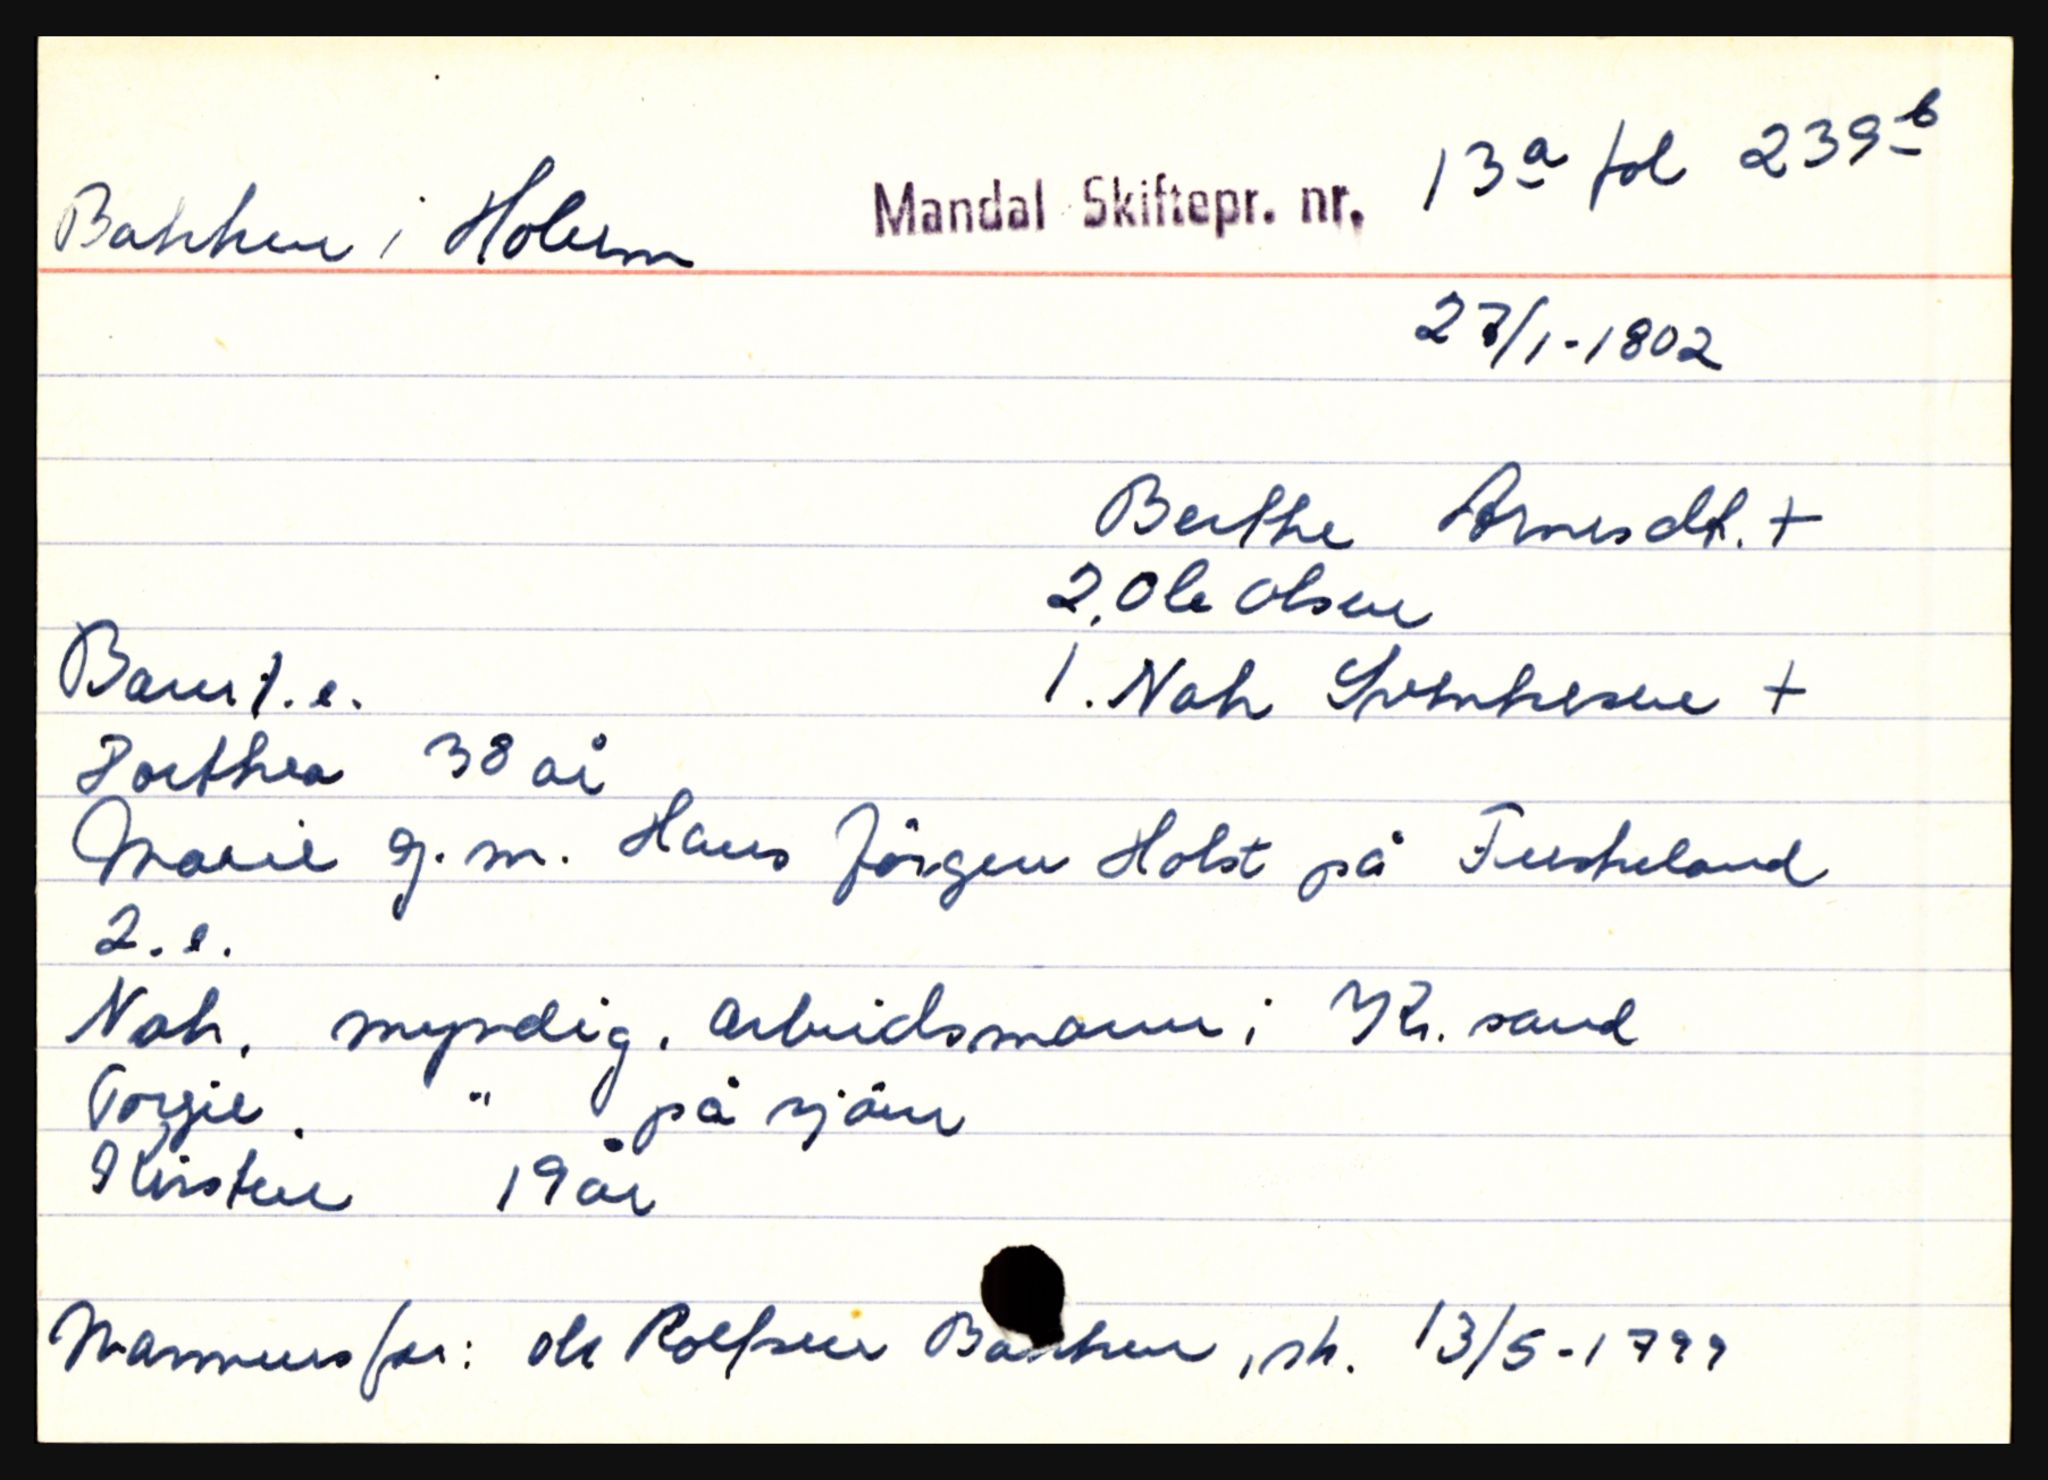 Bakken i Holum
Mandal Skiftepr. nr. 13a fol 239b
27/1-1802
Berthe Arnesdt. +
2. Ole Olsen
Barn 1. e.
1. Nah +
Dorthea 38 år
Marie gj. m. Hans Jörgen Holst på Fuskeland
2. e.
Nah, myndig. arbeidsmann i Kr. sand
Torgie. " på sjöen
Kirsten 19 år
Mannens far: Ole Rolfsen Bakken, sk. 13/5-1799